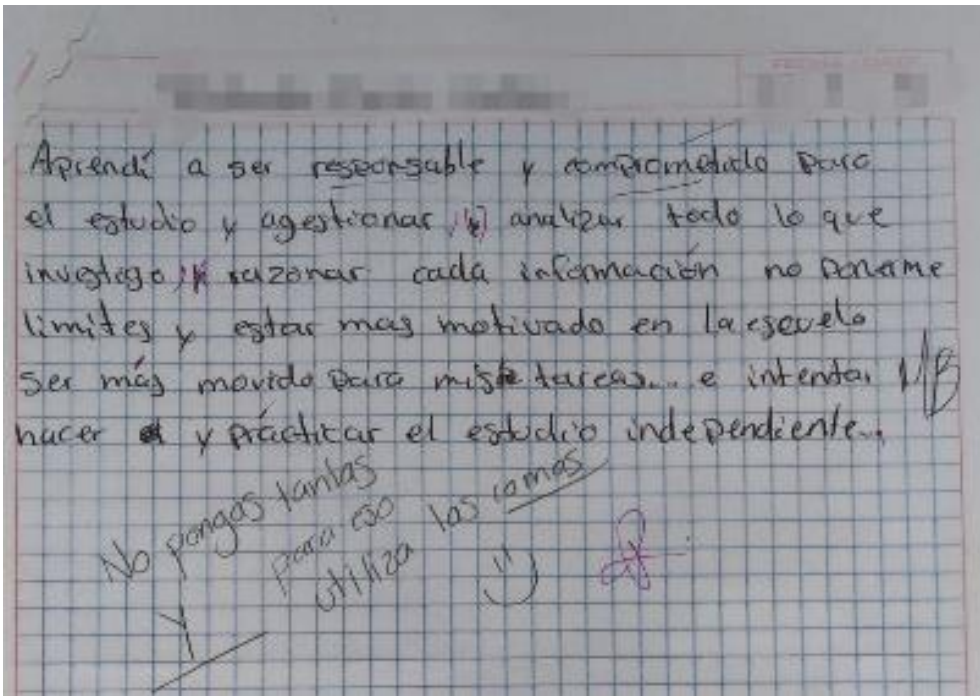 Aprendí a ser responsable y comprometido para
el estudio y agestionar y analizar todo lo que
investigo y razonar cada información no ponerme
limites y estar mas motivado en la escuela
ser más movido para mis tareas... e intentar
hacer y prácticar el estudio independiente..
MB
No pongas tantas
Y
para eso
utiliza las comas